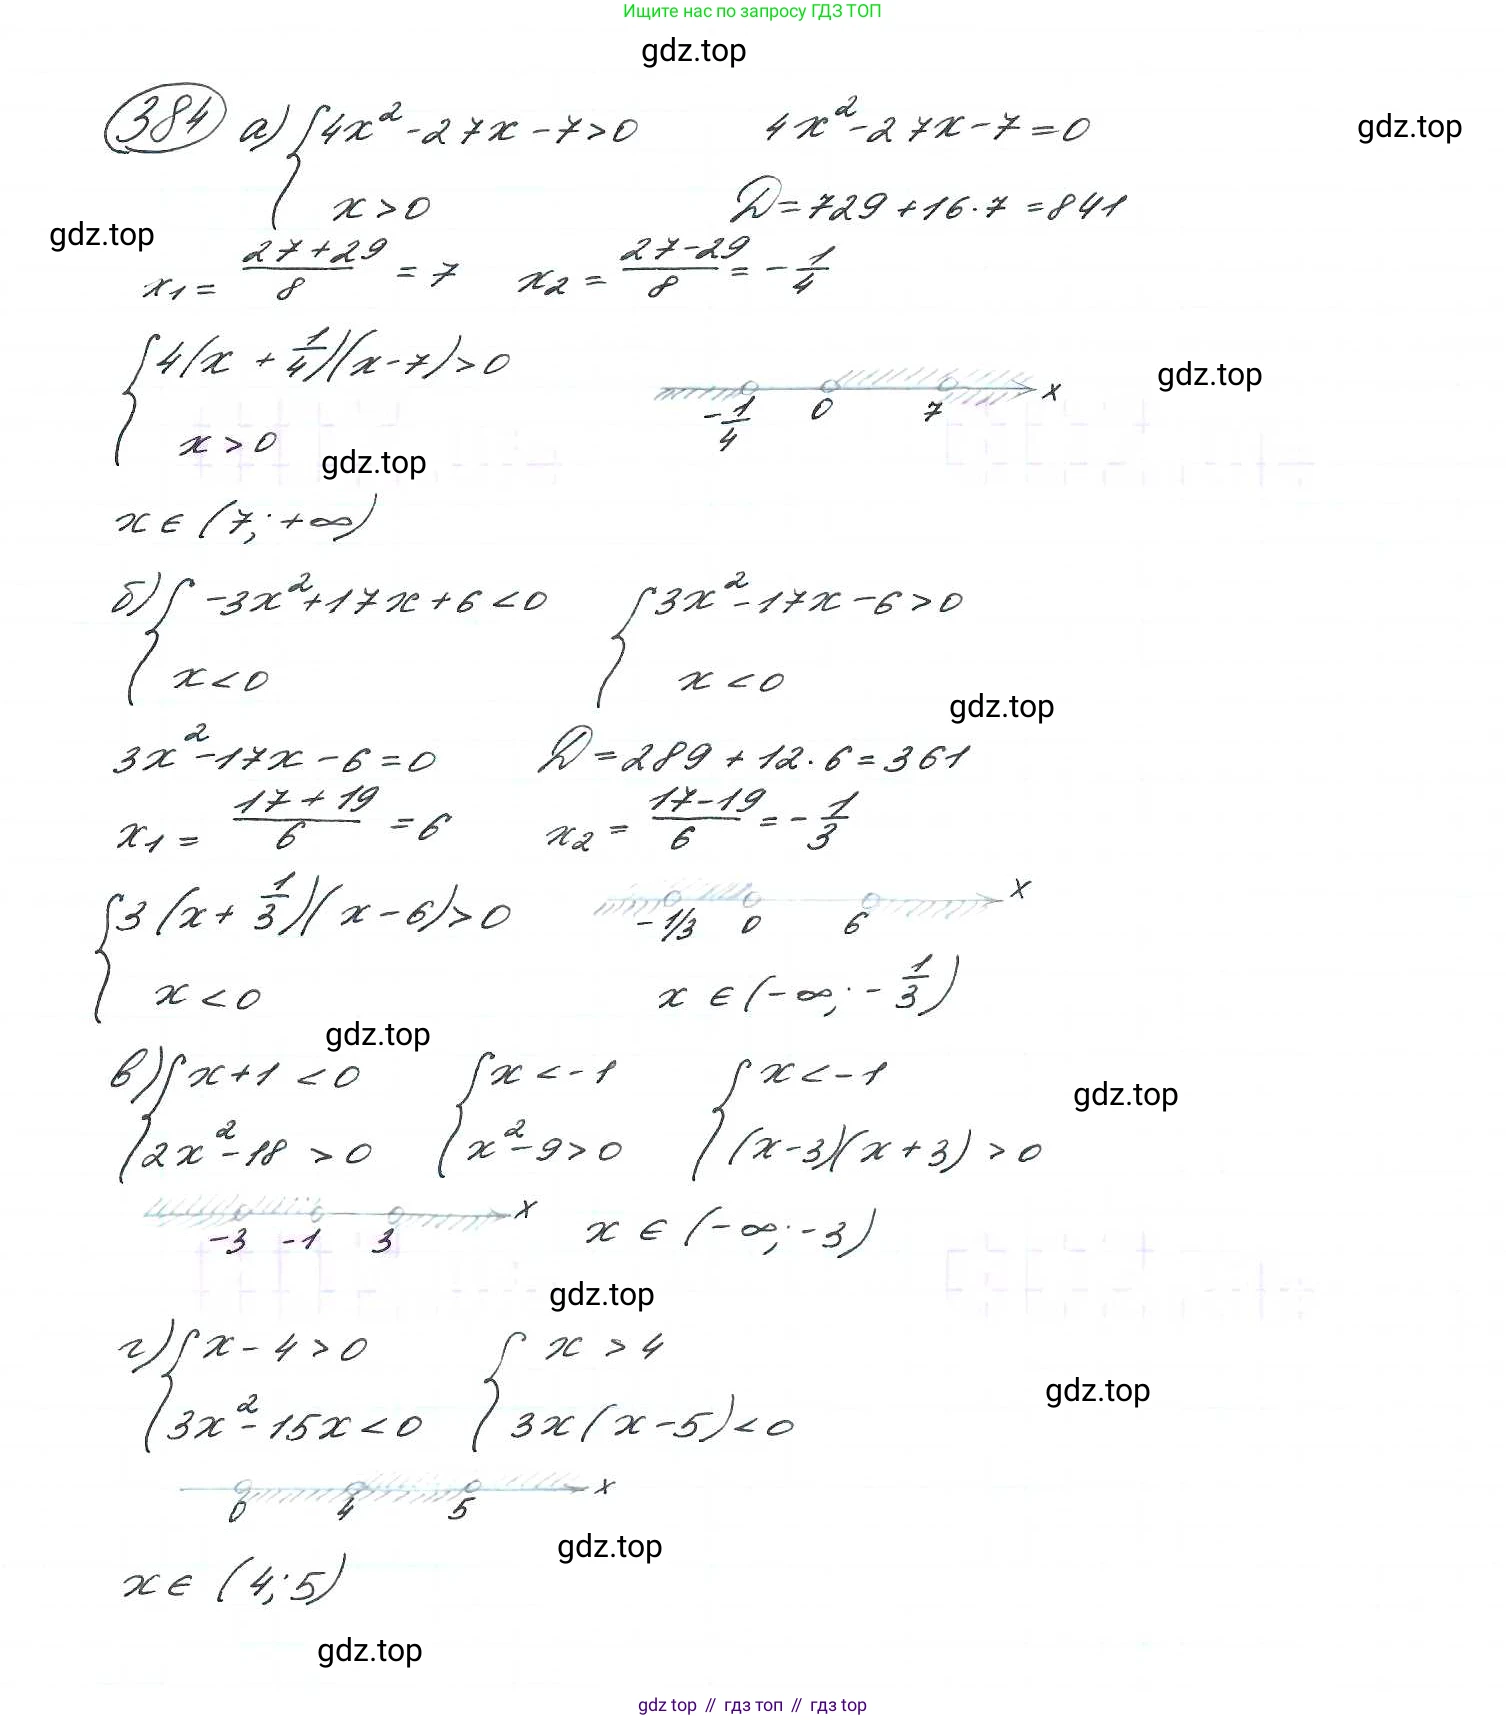 Ищите нас по запросу ГДЗ ТОП
gdz.top
384 а) { 4x² - 27x - 7 > 0    4x² - 27x - 7 = 0    gdz.top
x > 0    D = 729 + 16·7 = 841
gdz.top
x₁ = (27+29)/8 = 7    x₂ = (27-29)/8 = -1/4
{ 4(x + 1/4)(x - 7) > 0
x
gdz.top
-1/4  0  7
x > 0
gdz.top
x ∈ (7; +∞)
б) { -3x² + 17x + 6 < 0    { 3x² - 17x - 6 > 0
x < 0    x < 0
gdz.top
3x² - 17x - 6 = 0    D = 289 + 12·6 = 361
x₁ = (17+19)/6 = 6    x₂ = (17-19)/6 = -1/3
{ 3(x + 1/3)(x - 6) > 0    x
-1/3  0  6
x < 0    x ∈ (-∞; -1/3)
gdz.top
в) { x + 1 < 0    { x < -1    { x < -1
gdz.top
2x² - 18 > 0    x² - 9 > 0    (x - 3)(x + 3) > 0
x
-3  -1  3    x ∈ (-∞; -3)
gdz.top
г) { x - 4 > 0    { x > 4
gdz.top
3x² - 15x < 0    3x(x - 5) < 0
x
0  4  5
gdz.top
x ∈ (4; 5)
gdz.top
gdz top // гдз топ // гдз top